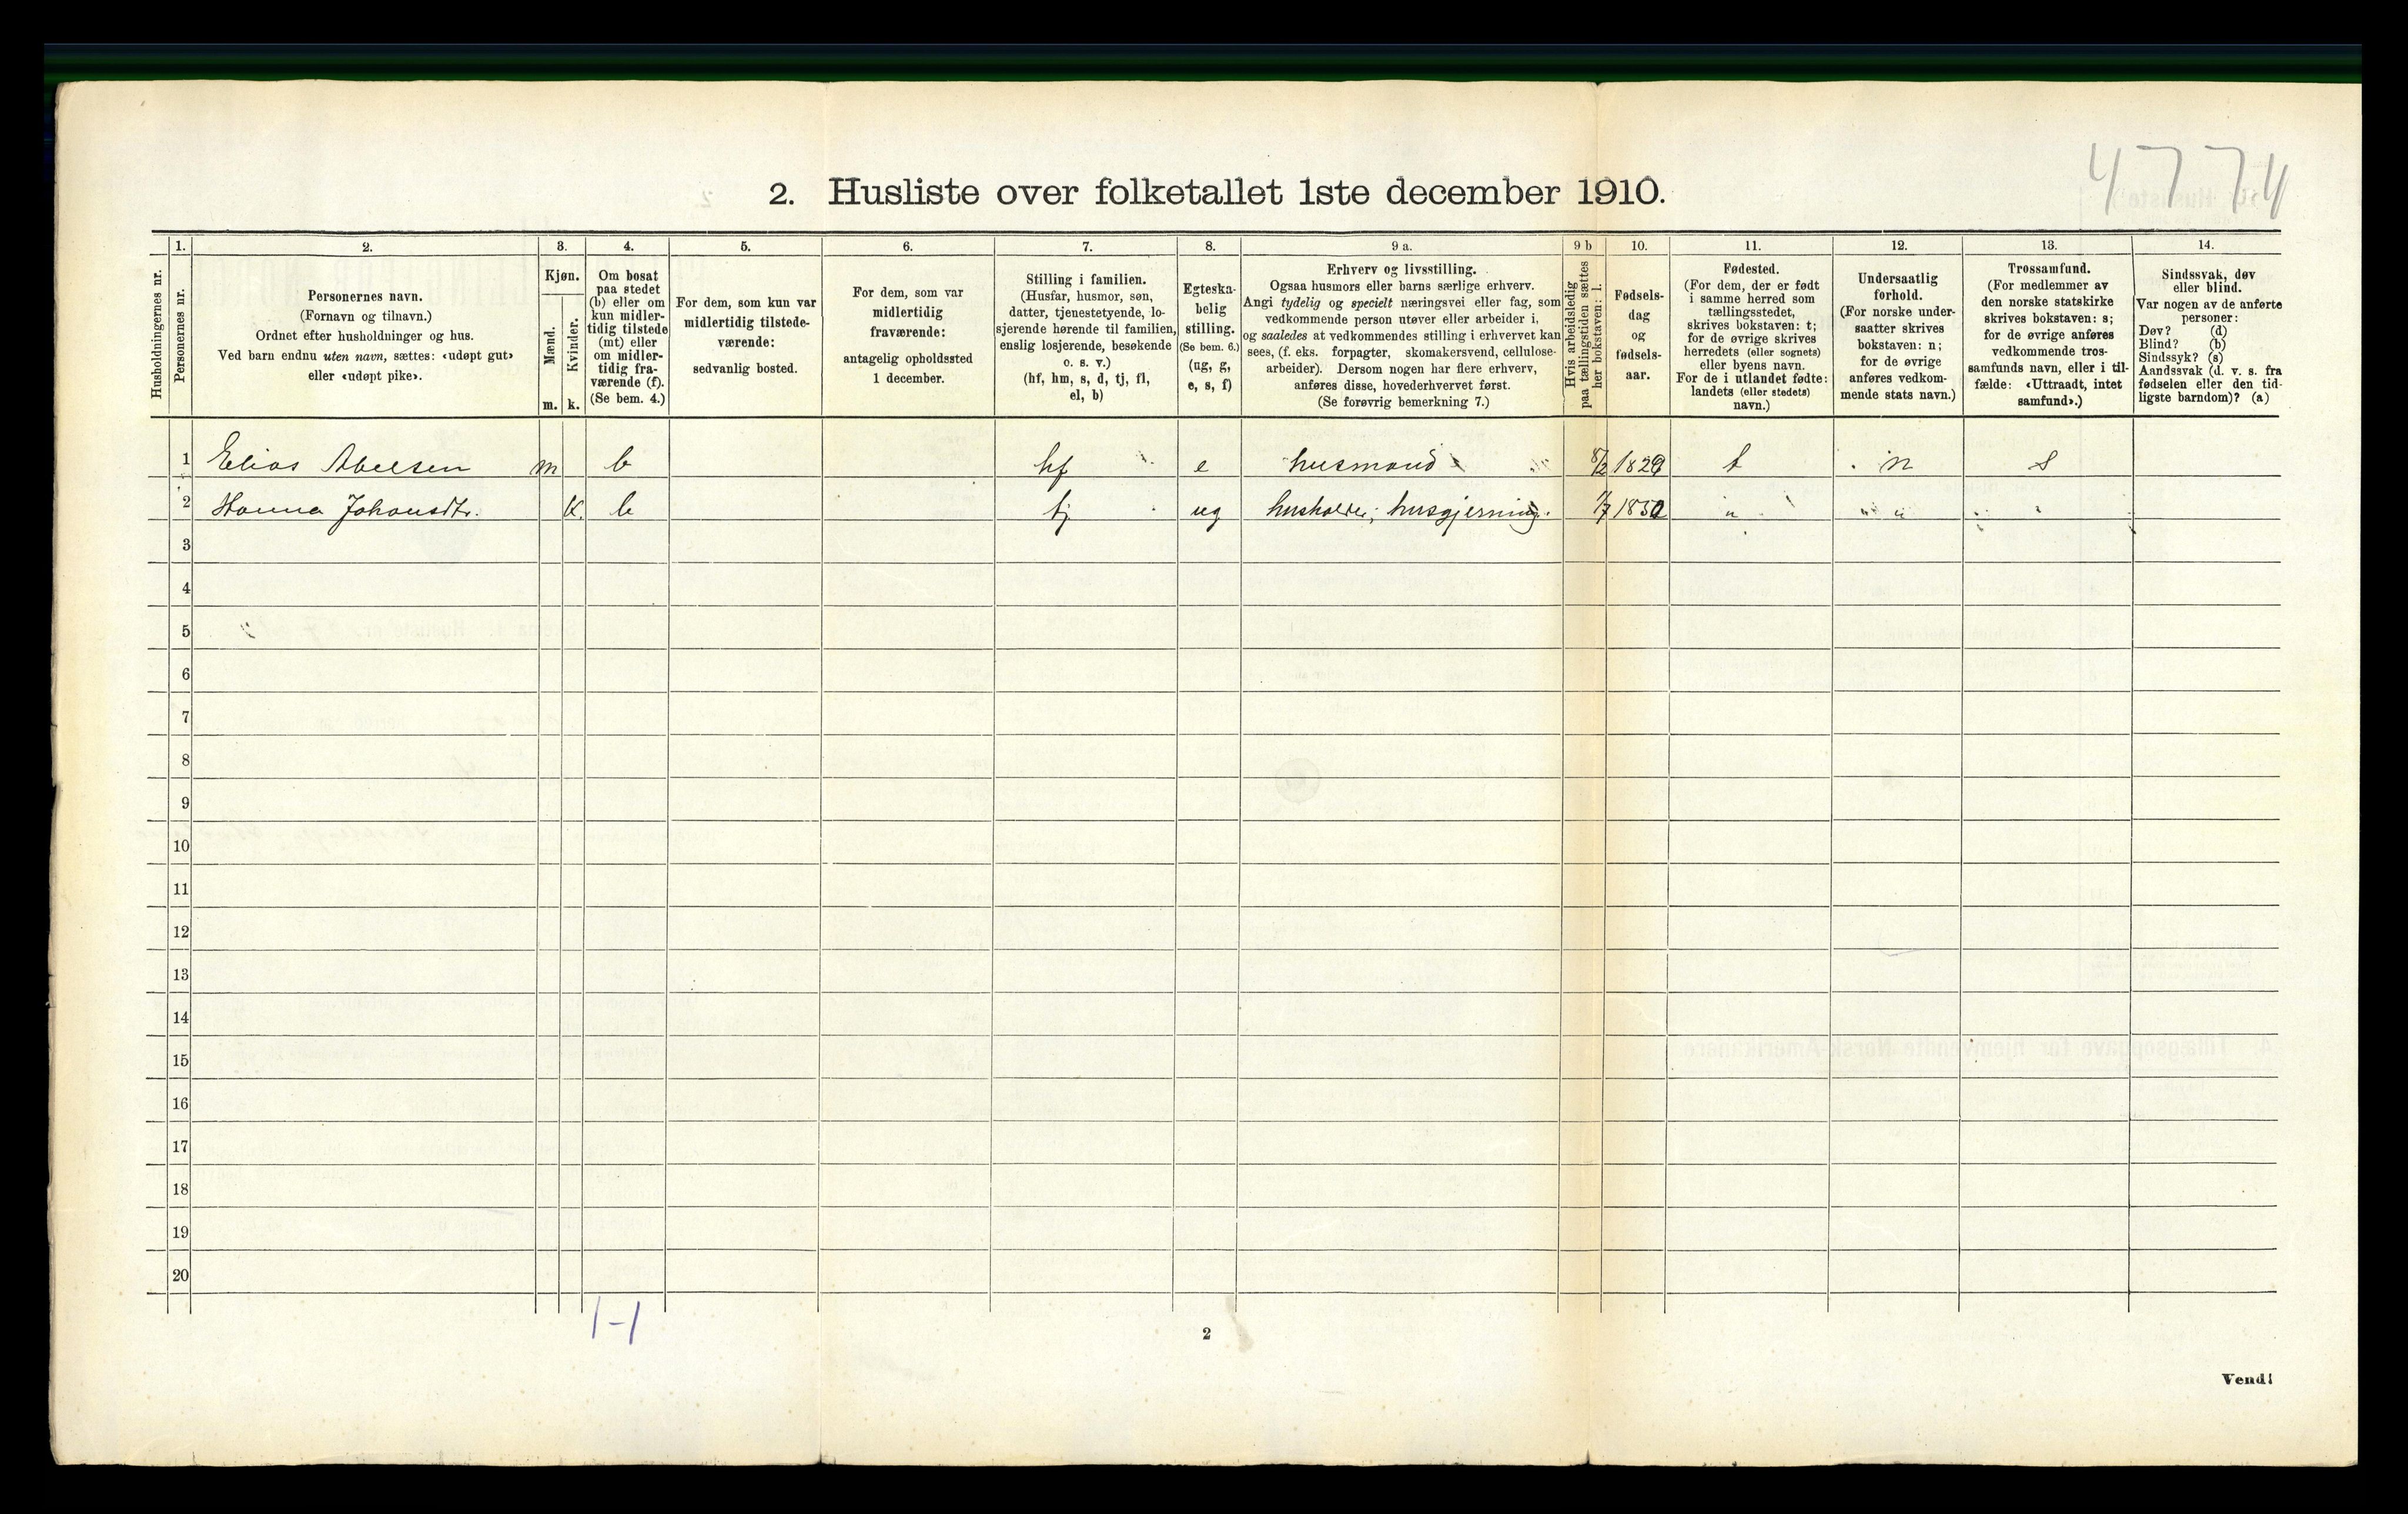 4774
2. Husliste over folketallet 1ste december 1910.
Husholdningernes nr.
1.
Personernes nr.
2.
Personernes navn.
(Fornavn og tilnavn.)
Ordnet efter husholdninger og hus.
Ved barn endnu uten navn, sættes: «udøpt gut»
eller «udøpt pike».
3.
Kjøn.
Mænd.
Kvinder.
m. k.
4.
Om bosat
paa stedet
(b) eller om
kun midler-
tidig tilstede
(mt) eller
om midler-
tidig fra-
værende (f).
(Se bem. 4.)
5.
For dem, som kun var
midlertidig tilstede-
værende:
sedvanlig bosted.
6.
For dem, som var
midlertidig
fraværende:
antagelig opholdssted
1 december.
7.
Stilling i familien.
(Husfar, husmor, søn,
datter, tjenestetyende, lo-
sjerende hørende til familien,
enslig losjerende, besøkende
o. s. v.)
(hf, hm, s, d, tj, fl,
el, b)
8.
Egteska-
belig
stilling.
(Se bem. 6.)
(ug, g,
e, s, f)
9 a.
Erhverv og livsstilling.
Ogsaa husmors eller barns særlige erhverv.
Angi tydelig og specielt næringsvei eller fag, som
vedkommende person utøver eller arbeider i,
og saaledes at vedkommendes stilling i erhvervet kan
sees, (f. eks. forpagter, skomakersvend, cellulose-
arbeider). Dersom nogen har flere erhverv,
anføres disse, hovederhvervet først.
(Se forøvrig bemerkning 7.)
9 b
Hvis arbeidsledig
paa tællingstiden sættes
her bokstaven: l.
10.
Fødsels-
dag
og
fødsels-
aar.
11.
Fødested.
(For dem, der er født
i samme herred som
tællingsstedet,
skrives bokstaven: t;
for de øvrige skrives
herredets (eller sognets)
eller byens navn.
For de i utlandet fødte:
landets (eller stedets)
navn.)
12.
Undersaatlig
forhold.
(For norske under-
saatter skrives
bokstaven: n;
for de øvrige
anføres vedkom-
mende stats navn.)
13.
Trossamfund.
(For medlemmer av
den norske statskirke
skrives bokstaven: s;
for de øvrige anføres
vedkommende tros-
samfunds navn, eller i til-
fælde: «Uttraadt, intet
samfund».)
14.
Sindssvak, døv
eller blind.
Var nogen av de anførte
personer:
Døv? (d)
Blind? (b)
Sindssyk? (s)
Aandssvak (d. v. s. fra
fødselen eller den tid-
ligste barndom)? (a)
1 Elias Abelsen m b hf e husmand 8/2 1829 t n s
2 Hanna Johansdtr. k. b tj ug husholder; husgjerning. 1/7 1850 " " "
3
4
5
6
7
8
9
10
11
12
13
14
15
16
17
18
19
20
1-1
2
Vend!